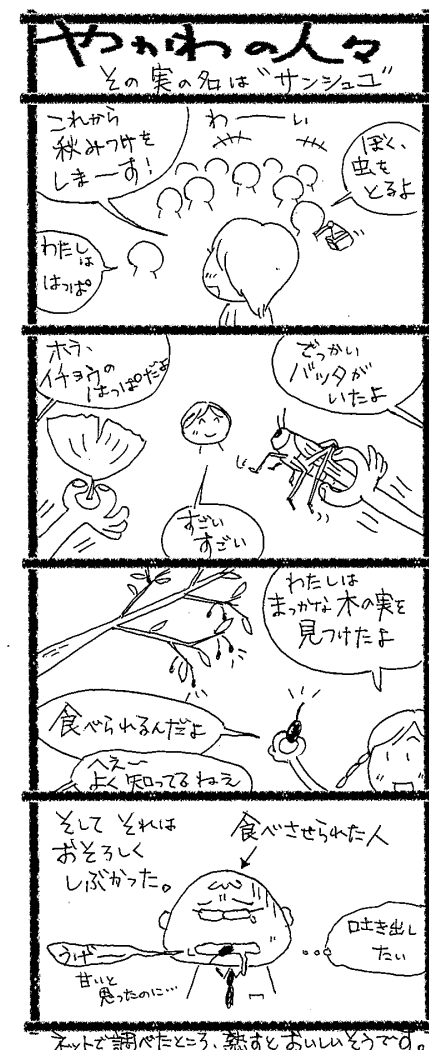 やつかわの人々
その実の名は"サンシュユ"
これから
秋みつけを
しまーす!
わーーい
ぼく、
虫を
とるよ
わたしは
はっぱ
ホラ、
イチョウの
はっぱだよ
でっかい
バッタが
いたよ
すごい
すごい
わたしは
まっかな木の実を
見つけたよ
食べられるんだよ
へえ〜
よく知ってるねえ
そして それは
おそろしく
しぶかった。
食べさせられた人
うげー
甘いと
思ったのに…
吐き出し
たい
ネットで調べたところ、熟すとおいしいそうです。